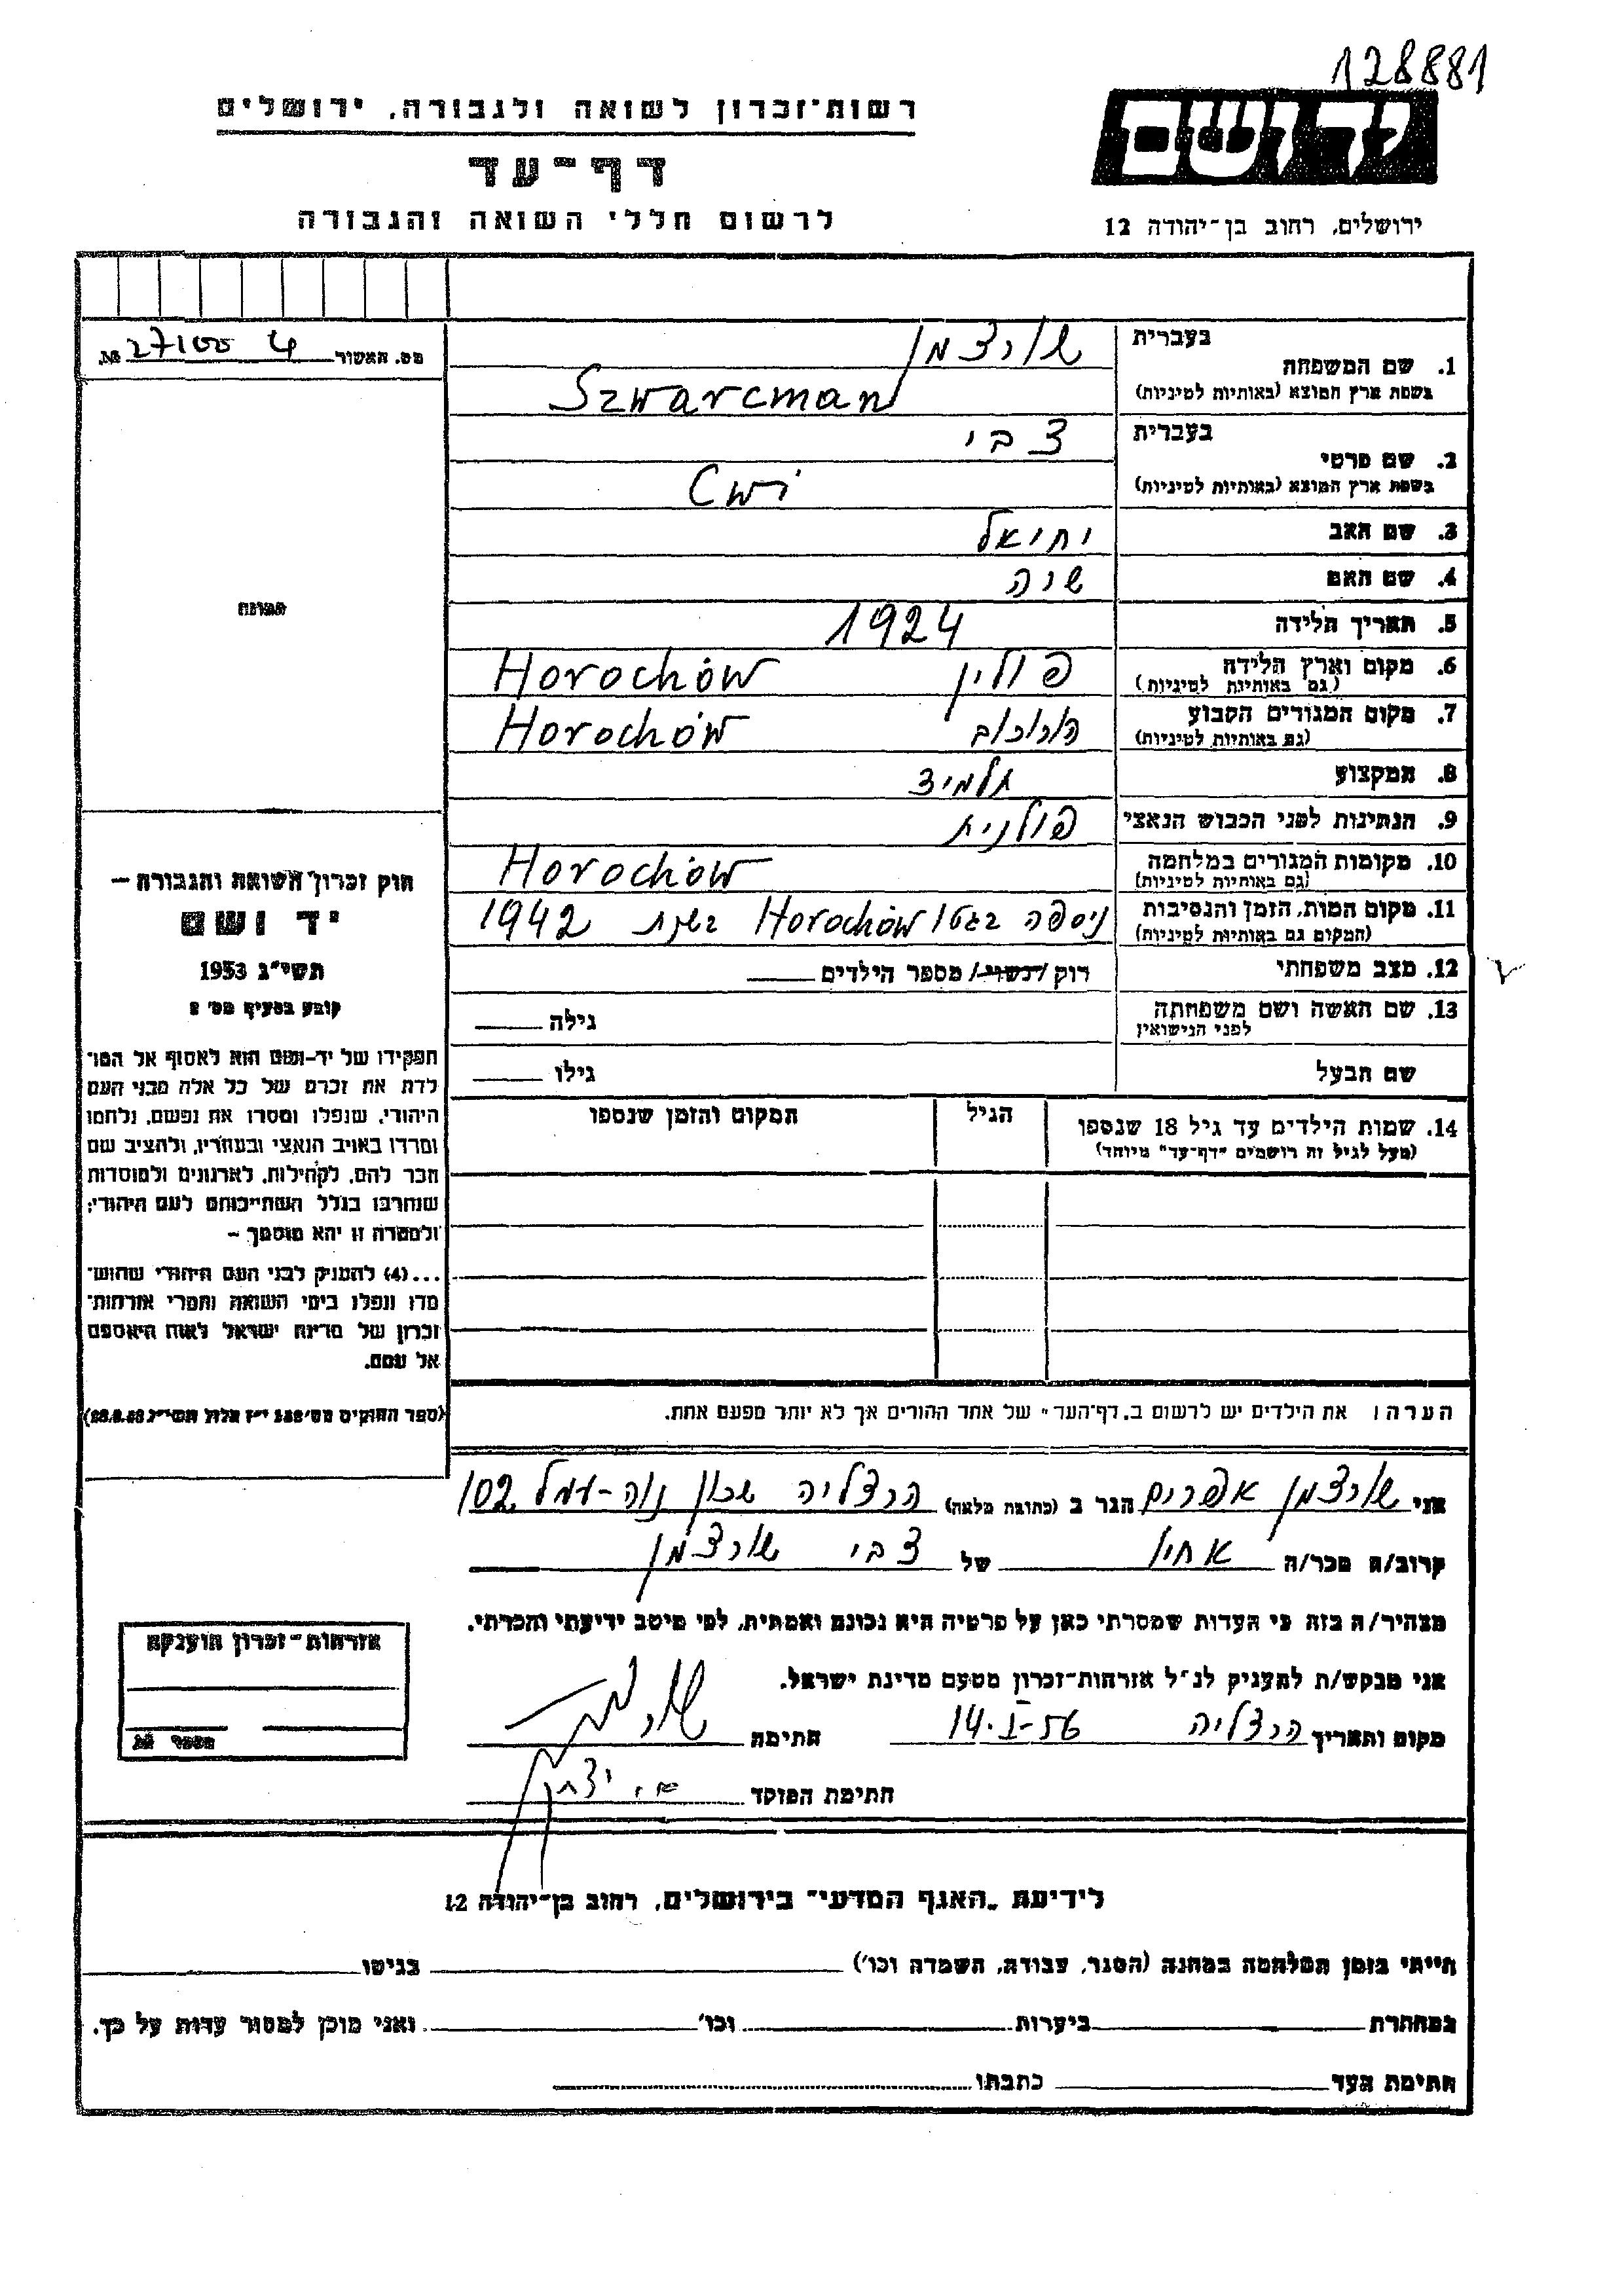 128881
רשות־זכרון לשואה ולגבורה, ירושלים
יד ושם
דף־עד
לרשום חללי השואה והגבורה
ירושלים, רחוב בן־יהודה 12
מס. האשור 4 27100 №
1. שם המשפחה בעברית שורצמן
בשפת ארץ המוצא (באותיות לטיניות) Szwarcman
2. שם פרטי בעברית צבי
בשפת ארץ המוצא (באותיות לטיניות) Cwi
3. שם האב יחיאל
4. שם האם
5. תאריך הלידה 1924
6. מקום וארץ הלידה פולין Horochów
(גם באותיות לטיניות)
7. מקום המגורים הקבוע הורוכוב Horochów
(גם באותיות לטיניות)
8. המקצוע תלמיד
9. הנתינות לפני הכבוש הנאצי פולנית
10. מקומות המגורים במלחמה Horochów
(גם באותיות לטיניות)
11. מקום המות, הזמן והנסיבות ניספה בגטו Horochów בשנת 1942
(המקום גם באותיות לטיניות)
12. מצב משפחתי רוק/נשוי/ מספר הילדים
13. שם האשה ושם משפחתה גילה
לפני הנישואין
שם הבעל גילו
14. שמות הילדים עד גיל 18 שנספו הגיל המקום והזמן שנספו
(מעל לגיל זה רושמים "דף־עד" מיוחד)
הערה: את הילדים יש לרשום ב"דף־העד" של אחד ההורים אך לא יותר מפעם אחת.
התמונה
חוק זכרון השואה והגבורה –
יד ושם
תשי"ג 1953
קובע בסעיף מס' 2
תפקידו של יד־ושם הוא לאסוף אל המו־
לדת את זכרם של כל אלה מבני העם
היהודי, שנפלו ומסרו את נפשם, נלחמו
ומרדו באויב הנאצי ובעוזריו, ולהציב שם
וזכר להם, לקהילות, לארגונים ולמוסדות
שנחרבו בגלל השתייכותם לעם היהודי;
ולמטרה זו יהא מוסמך –
...(4) להעניק לבני העם היהודי שהוש־
מדו ונפלו בימי השואה והמרי אזרחות־
זכרון של מדינת ישראל לאות היאספם
אל עמם.
(ספר החוקים מס' 132 י"ז אלול תשי"ג 28.8.53)
אני שורצמן אפרים הגר ב (כתובת מלאה) הרצליה שכון נוה־עמל 102
קרוב/ה מכר/ה אחיו של צבי שורצמן
מצהיר/ה בזה כי העדות שמסרתי כאן על פרטיה היא נכונה ואמתית, לפי מיטב ידיעתי והכרתי.
אני מבקש/ת להעניק לנ"ל אזרחות־זכרון מטעם מדינת ישראל.
מקום ותאריך הרצליה 14-I-56 חתימה
חתימת הפוקד
אזרחות־זכרון הוענקה
מספר №
לידיעת "האגף המדעי" בירושלים, רחוב בן־יהודה 12
הייתי בזמן המלחמה במחנה (הסגר, עבודה, השמדה וכו') בגיטו
במחתרת ביערות וכו' ואני מוכן למסור עדות על כך.
חתימת העד כתבתו